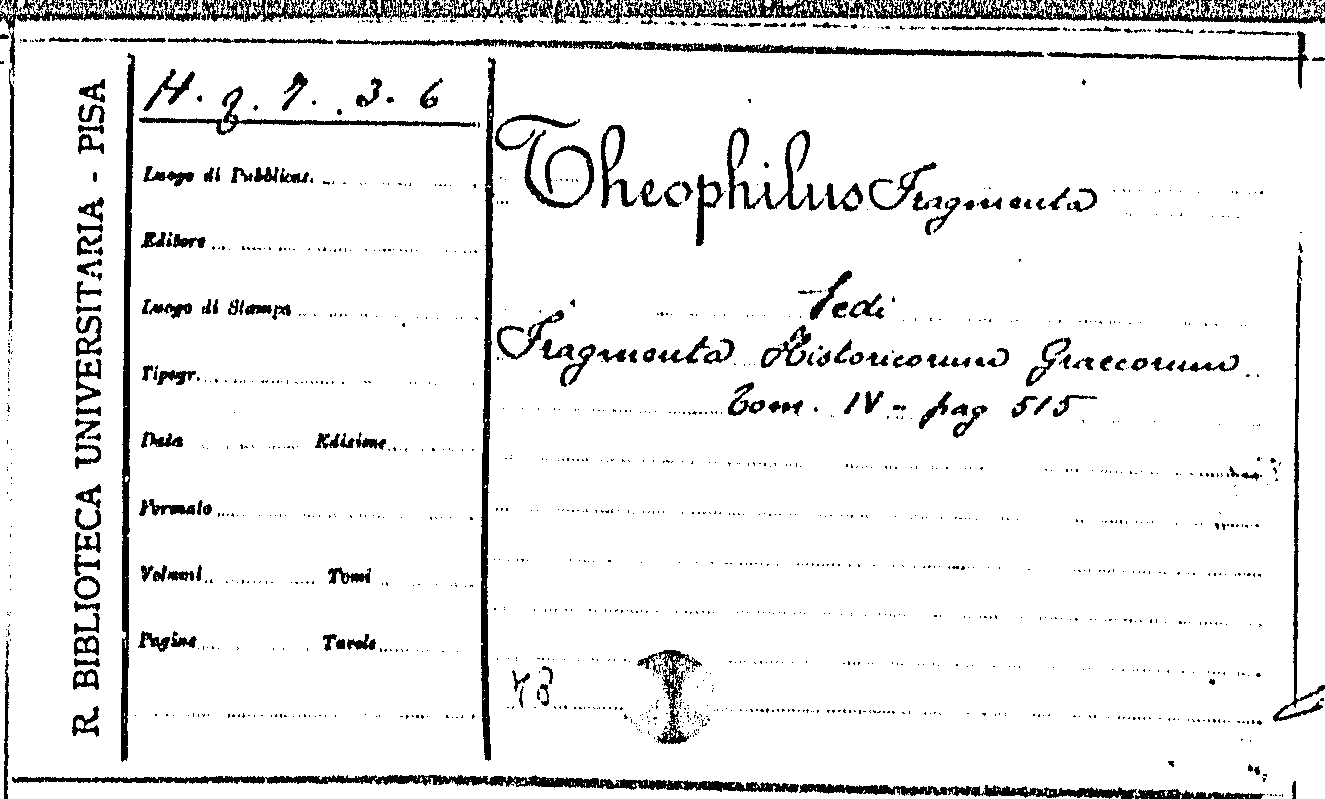 R. BIBLIOTECA UNIVERSITARIA - PISA
H. z. 7. 3. 6
Luogo di Pubblicaz.
Editore
Luogo di Stampa
Tipogr.
Data Edizione
Formato
Volumi Tomi
Pagine Tavole
Theophilus Fragmenta
Vedi
Fragmenta Historicorum Graecorum
Tom. IV - pag 515